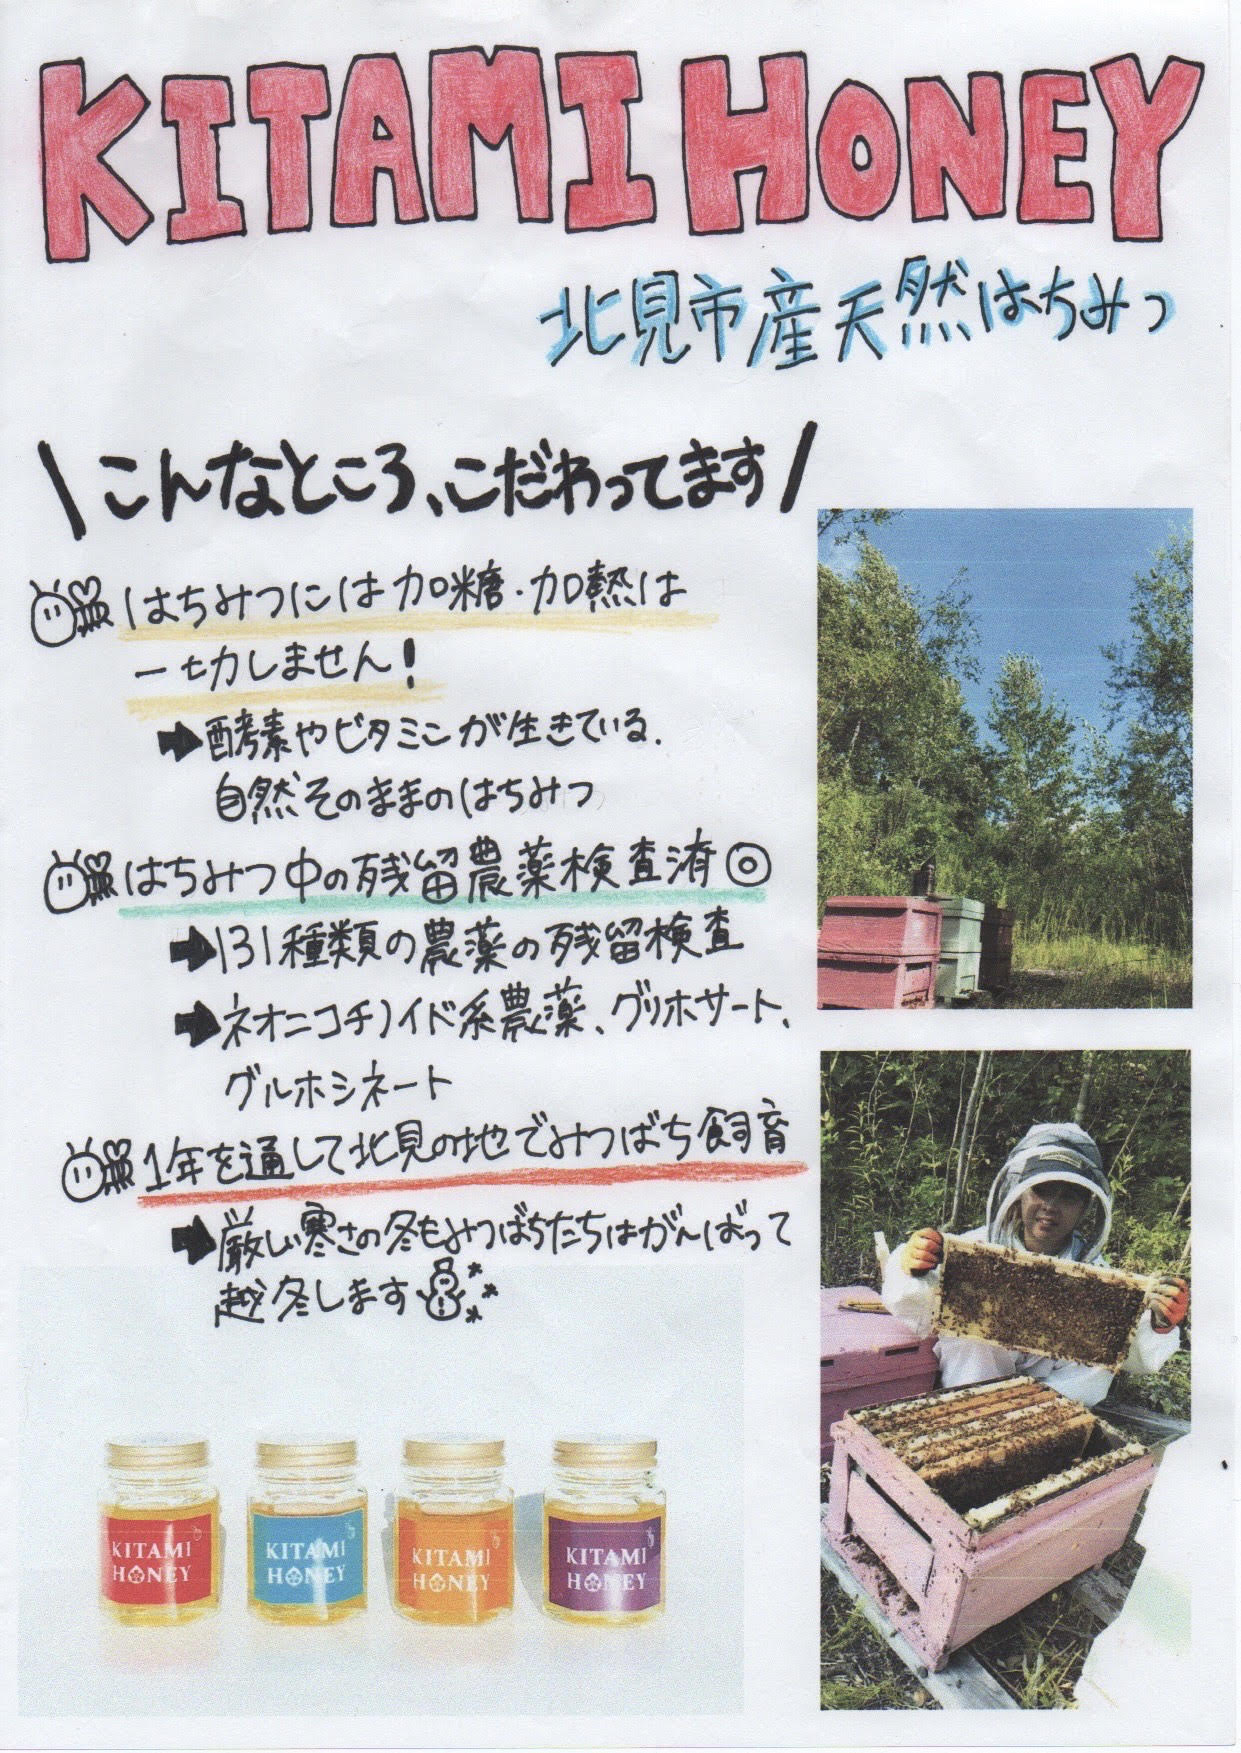 KITAMI HONEY
北見市産天然はちみつ
\こんなところ、こだわってます/
はちみつには加糖・加熱は
一切しません!
➡酵素やビタミンが生きている、
自然そのままのはちみつ
はちみつ中の残留農薬検査済◎
➡131種類の農薬の残留検査
➡ネオニコチノイド系農薬、グリホサート、
グルホシネート
1年を通して北見の地でみつばち飼育
➡厳しい寒さの冬もみつばちたちはがんばって
越冬します
KITAMI
HONEY
KITAMI
HONEY
KITAMI
HONEY
KITAMI
HONEY